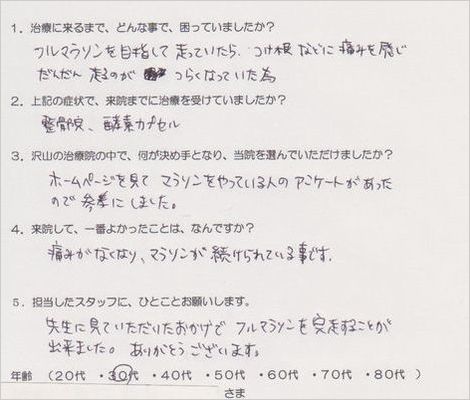 1．治療に来るまで、どんな事で、困っていましたか？
フルマラソンを目指して走っていたら、つけ根などに痛みを感じ
だんだん走るのがつらくなっていた為
2．上記の症状で、来院までに治療を受けていましたか？
整骨院、酵素カプセル
3．沢山の治療院の中で、何が決め手となり、当院を選んでいただけましたか？
ホームページを見てマラソンをやっている人のアンケートがあった
ので参考にしました。
4．来院して、一番よかったことは、なんですか？
痛みがなくなり、マラソンが続けられている事です。
5．担当したスタッフに、ひとことお願いします。
先生に見ていただいたおかげでフルマラソンを完走することが
出来ました。ありがとうございます。
年齢（20代・30代・40代・50代・60代・70代・80代）
さま